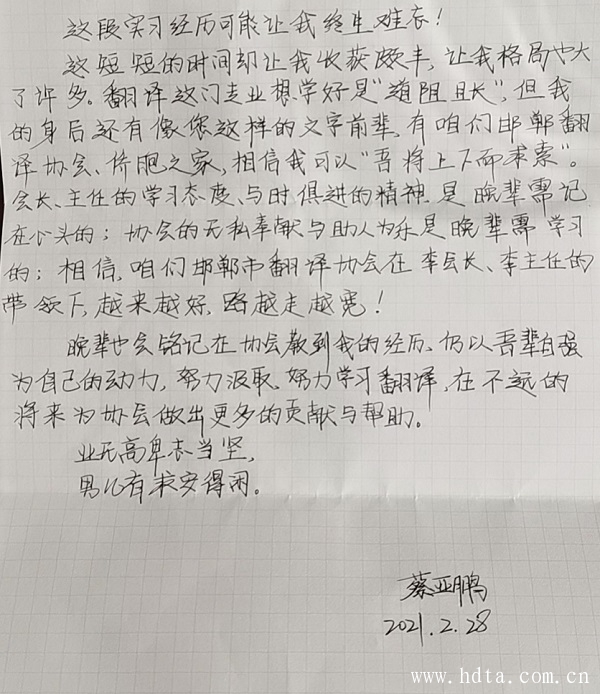 这段实习经历可能让我终生难忘！
这短短的时间却让我收获颇丰，让我格局也大
了许多。翻译这门专业想学好是“道阻且长”，但我
的身后还有像您这样的文字前辈，有咱们邯郸翻
译协会、侨胞之家，相信我可以“吾将上下而求索”。
会长、主任的学习态度、与时俱进的精神是晚辈需记
在心头的；协会的无私奉献与助人为乐是晚辈需学习
的；相信，咱们邯郸市翻译协会在李会长、李主任的
带领下，越来越好，路越走越宽！
晚辈也会铭记在协会教到我的经历、仍以吾辈自强
为自己的动力，努力汲取、努力学习翻译，在不远的
将来为协会做出更多的贡献与帮助。
业无高卑志当坚，
男儿有求安得闲。
蔡亚鹏
2021.2.28
www.hdta.com.cn